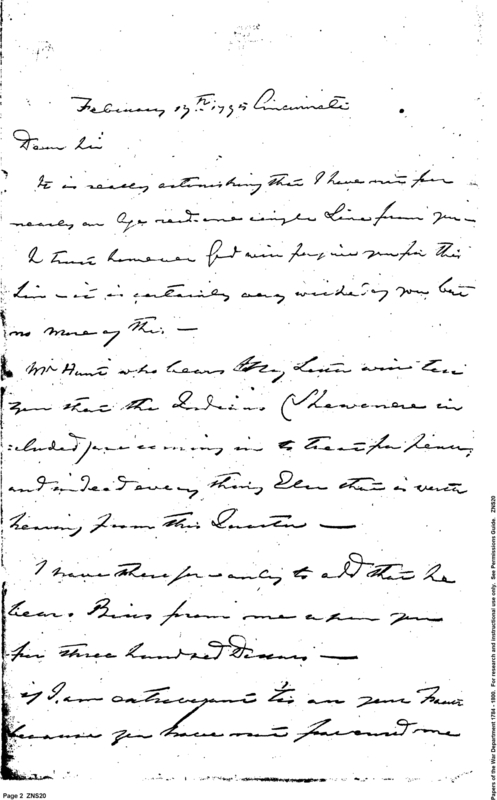 February 17th 1795 Cincinnati
Dear Sir
It is really astonishing that I have not for
nearly an Age recd one single Line from you —
I trust however God will forgive you for this
Sin — it is certainly very wicked of you but
no more of this. —
Mr Hunt who bears this my Letter will tell
you that the Indians (Shawonese in
cluded) are coming in to treat for peace,
and indeed every thing Else that is worth
hearing from this Quarter —
I have therefore only to add that he
bears Bills from me upon you
for three hundred Dollars —
if I am extravagant tis all your Fault
because you have not favoured me
Page 2 ZNS20
Papers of the War Department 1784 - 1800. For research and instructional use only. See Permissions Guide. ZNS20